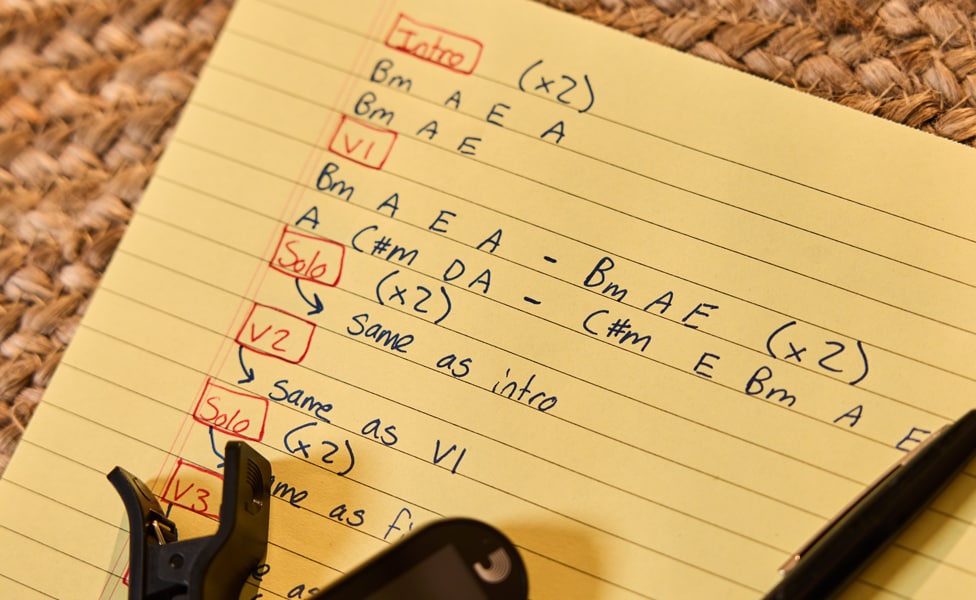 Intro (x2)
Bm A E A
Bm A E
V1
Bm A E A - Bm A E (x2)
A C#m D A - C#m E Bm A E
Solo (x2)
same as intro
V2
same as V1
Solo (x2)
as
V3
as